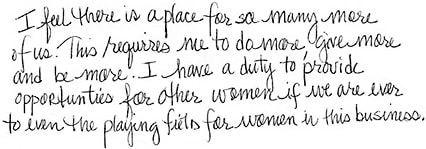 I feel there is a place for so many more
of us. This requires me to do more, give more
and be more. I have a duty to provide
opportunties for other women if we are ever
to even the playing fields for women in this business.